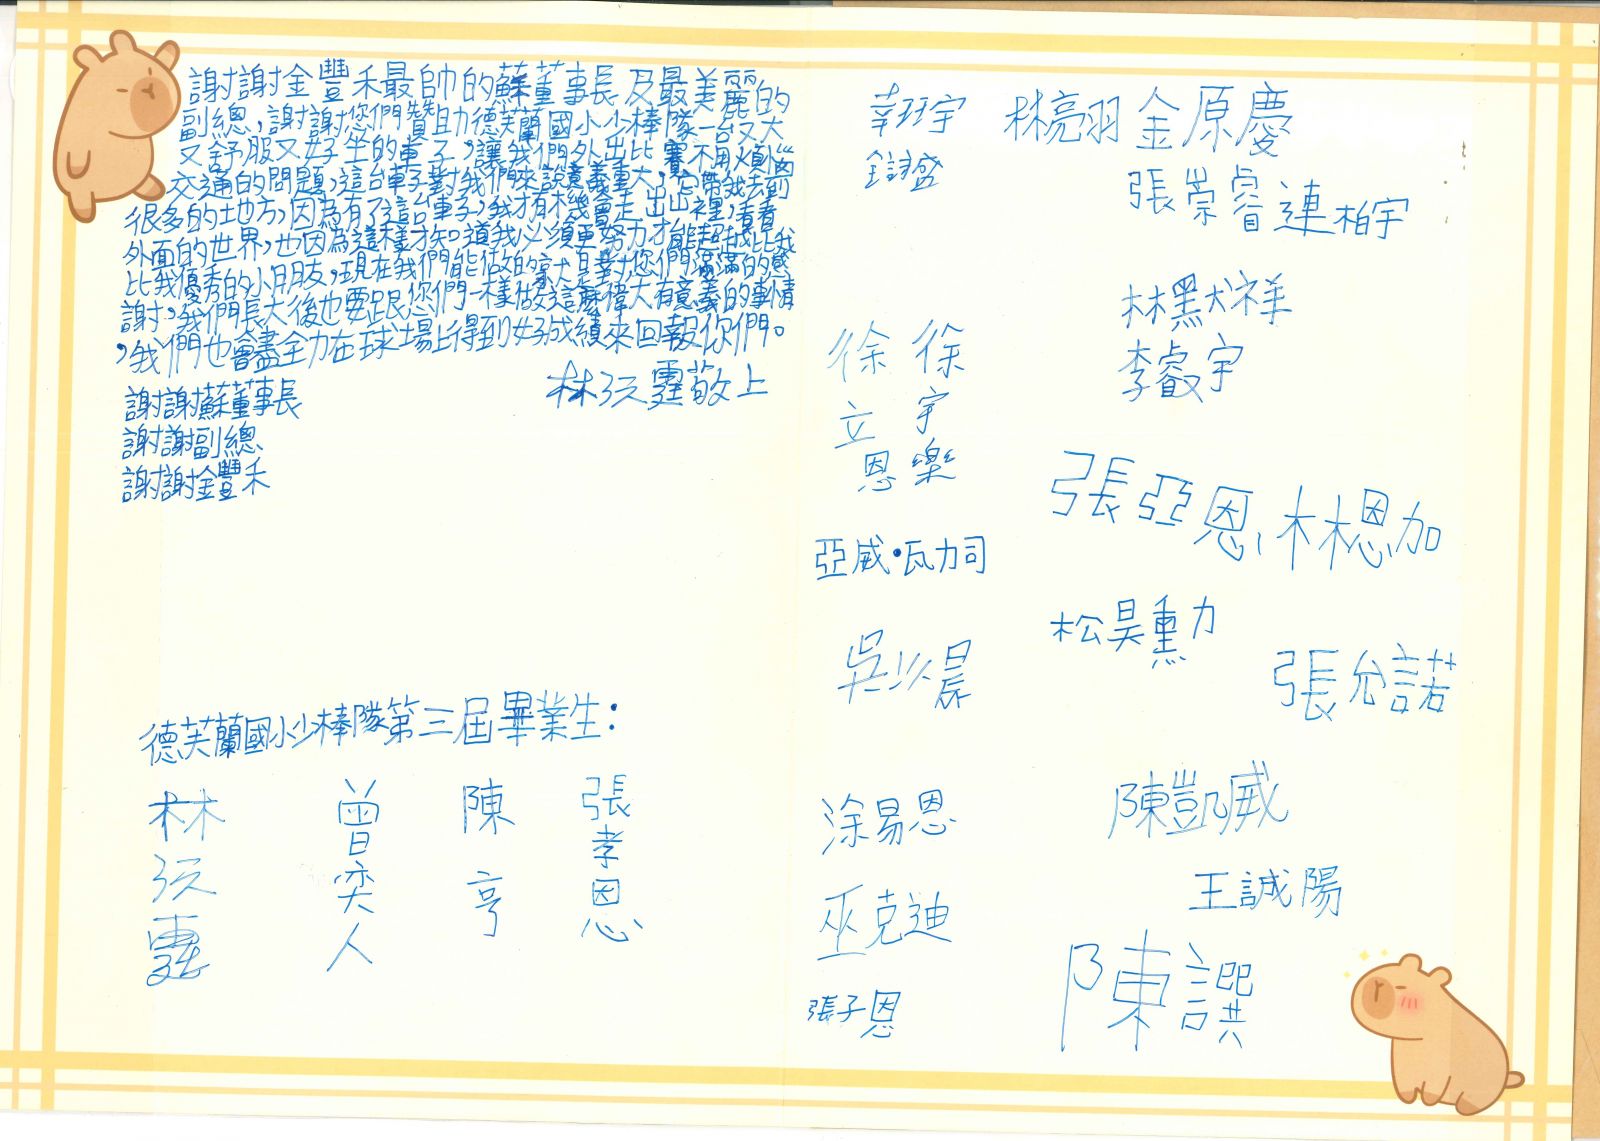 謝謝金豐禾最帥的蘇董事長及最美麗的
副總，謝謝您們贊助德芙蘭國小少棒隊一台又大
又舒服又好坐的車子，讓我們外出比賽不用煩惱
交通的問題，這台車子對我們來說意義重大，它帶我去到
很多的地方，因為有了這台車子，我才有機會走出山裡，看看
外面的世界，也因為這樣才知道我必須更努力才能超越比我
比我優秀的小朋友，現在我們能做的就是對您們滿滿的感
謝，我們長大後也要跟您們一樣做這麼偉大有意義的事情
，我們也會盡全力在球場上得到好成績來回報你們。
林泓霆敬上
謝謝蘇董事長
謝謝副總
謝謝金豐禾
德芙蘭國小少棒隊第三屆畢業生：
林
曾奕人
陳亨
張孝恩
宇 林亮羽 金原慶
盛
張崇睿 連柏宇
林 祥
李睿宇
徐立恩
徐宇樂
張亞恩 林恩加
亞威•瓦力司
松昊勳力
吳 晨
張允諾
涂易恩
陳凱威
巫克迪
王誠陽
張子恩
陳譔